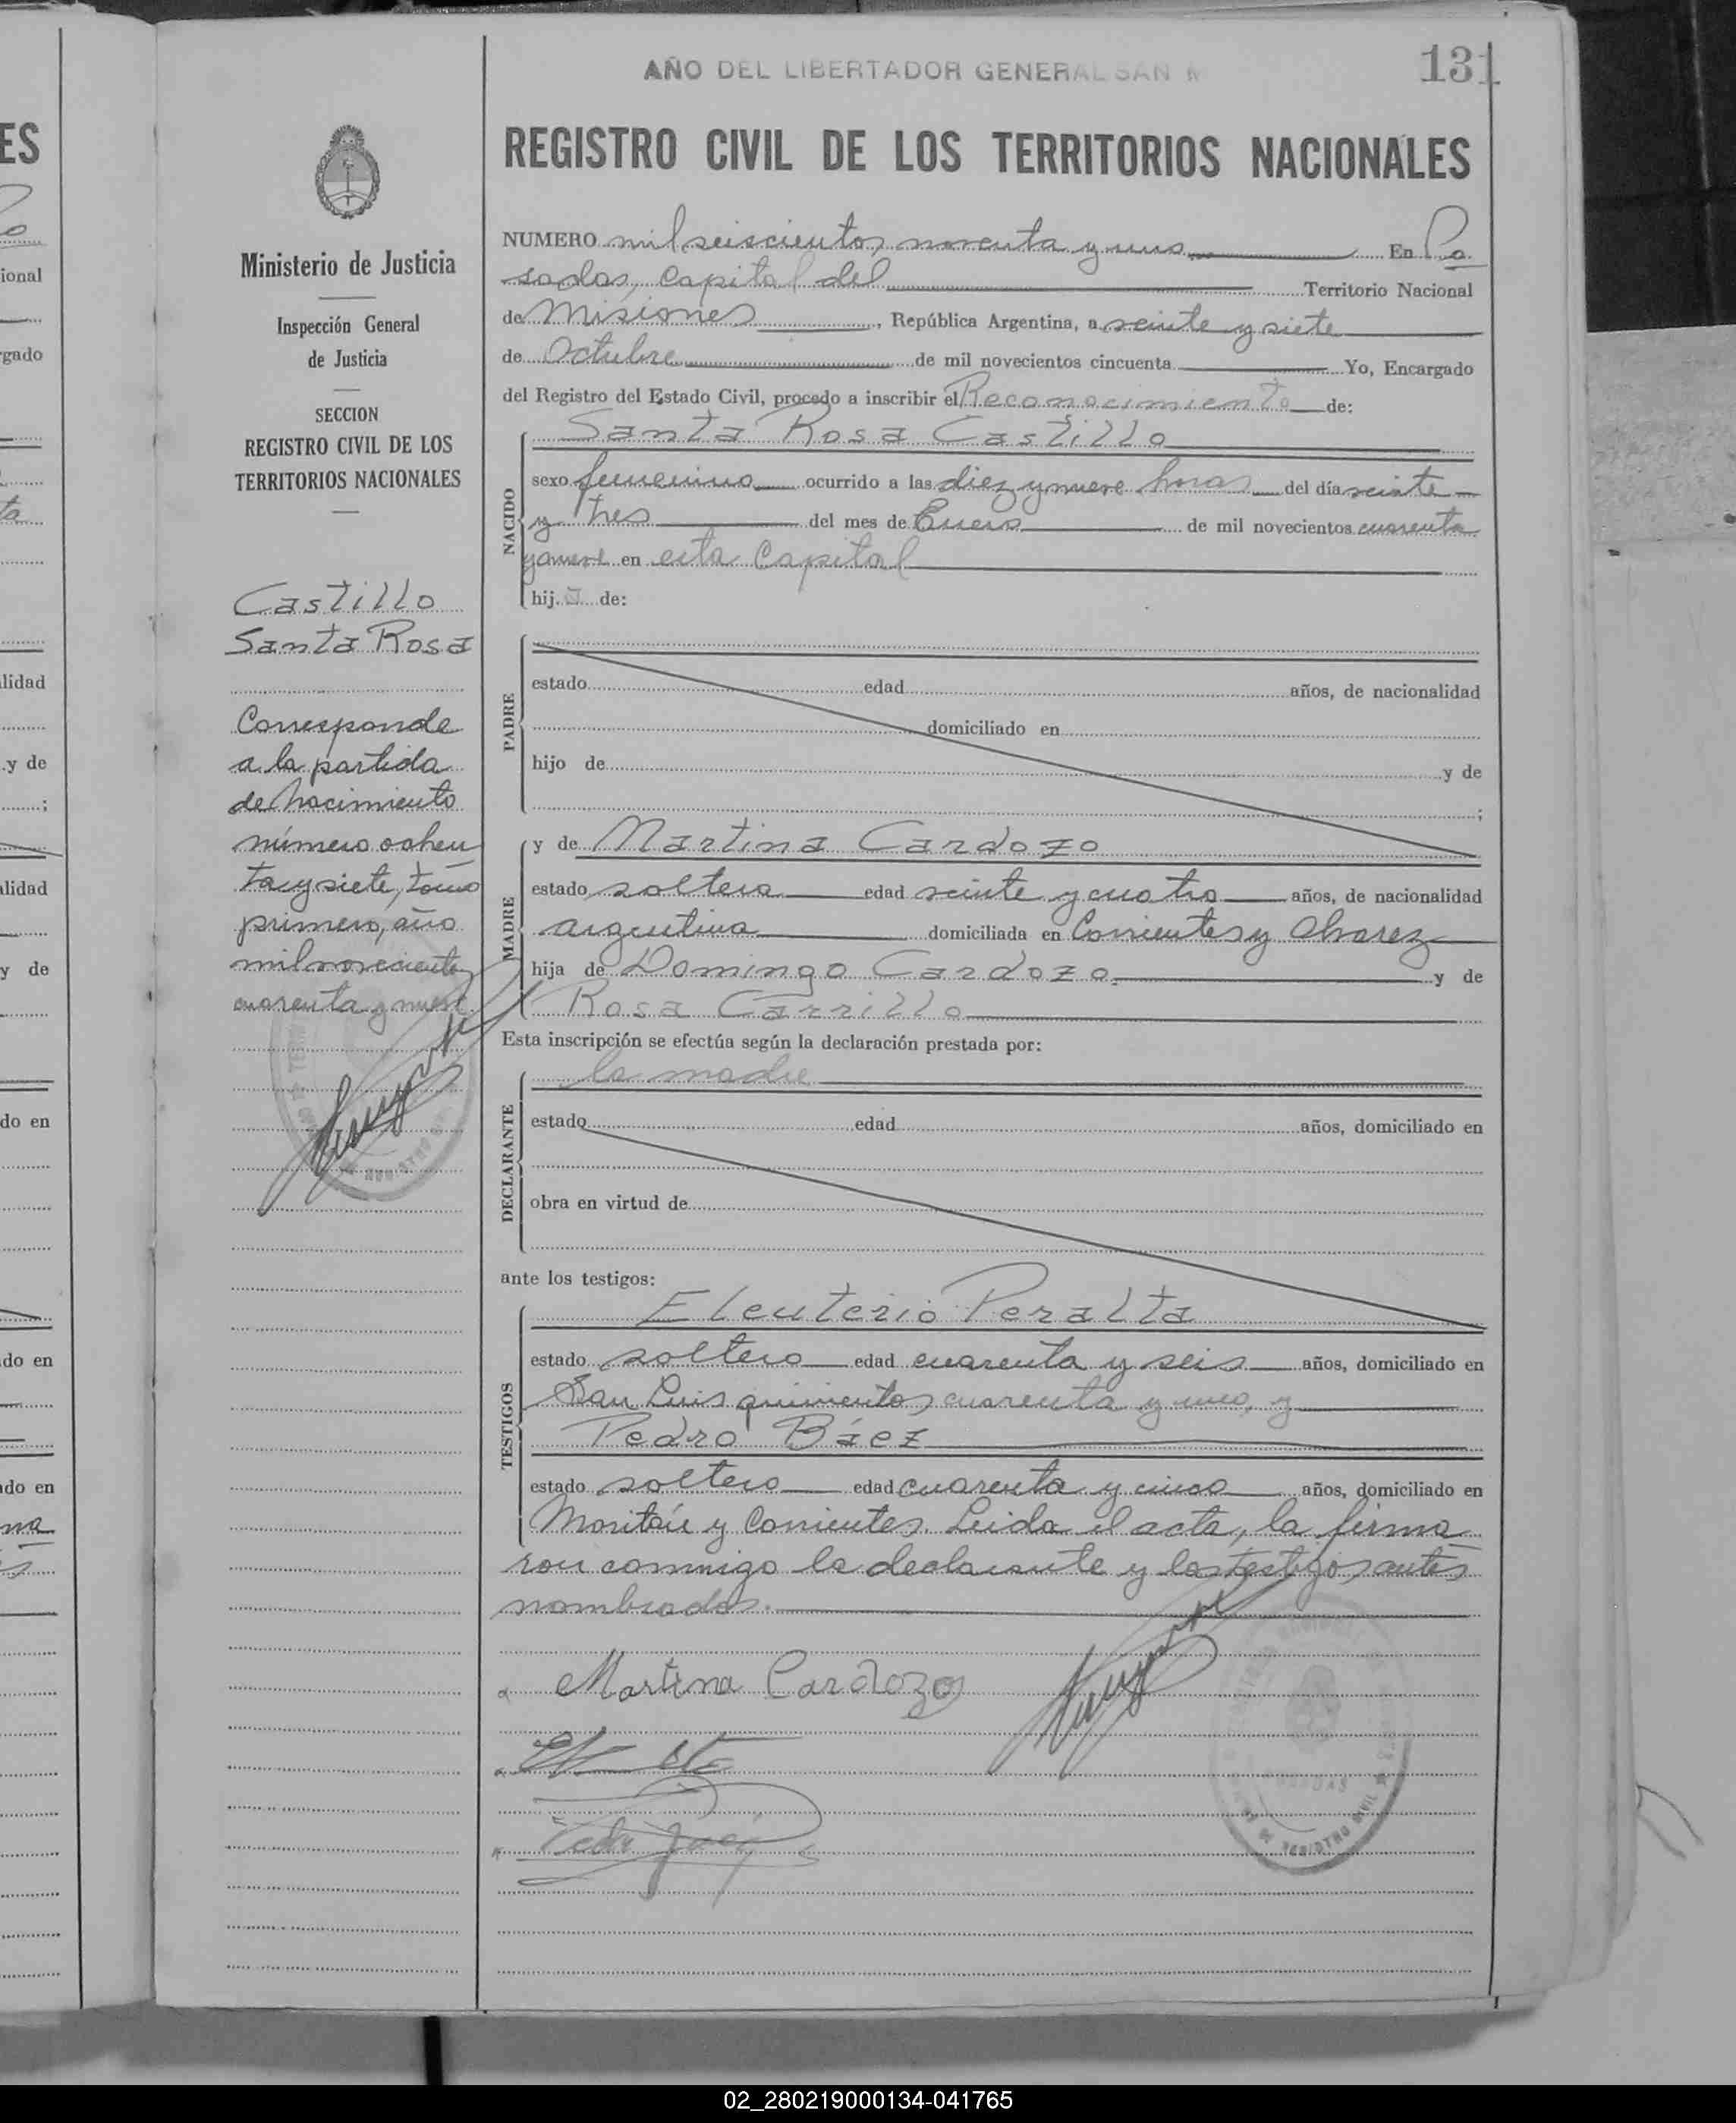 AÑO DEL LIBERTADOR GENERAL SAN M
131
REGISTRO CIVIL DE LOS TERRITORIOS NACIONALES
Ministerio de Justicia
Inspección General
de Justicia
SECCION
REGISTRO CIVIL DE LOS
TERRITORIOS NACIONALES
Castillo
Santa Rosa
Corresponde
a la partida
de nacimiento
número ochen
ta y siete, tomo
primero, año
mil novecientos
cuarenta y nueve
NUMERO mil seiscientos noventa y uno En Po
sadas, capital del Territorio Nacional
de Misiones, República Argentina, a veinte y siete
de Octubre de mil novecientos cincuenta Yo, Encargado
del Registro del Estado Civil, procedo a inscribir el Reconocimiento de:
Santa Rosa Castillo
NACIDO
sexo femenino ocurrido a las diez y nueve horas del día veinte
y tres del mes de Enero de mil novecientos cuarenta
y nueve en esta Capital
hija de:
PADRE
estado edad años, de nacionalidad
domiciliado en
hijo de y de
;
MADRE
y de Martina Cardozo
estado soltera edad veinte y cuatro años, de nacionalidad
argentina domiciliada en Corrientes y Alvarez
hija de Domingo Cardozo y de
Rosa Carrillo
Esta inscripción se efectúa según la declaración prestada por:
DECLARANTE
la madre
estado edad años, domiciliado en
obra en virtud de
ante los testigos:
TESTIGOS
Eleuterio Peralta
estado soltero edad cuarenta y seis años, domiciliado en
San Luis quinientos cuarenta y uno, y
Pedro Báez
estado soltero edad cuarenta y cinco años, domiciliado en
y Corrientes. Leida el acta, la firma
ron conmigo la declarante y los testigos antes
nombrados.
Martina Cardozo
REGISTRO CIVIL
02_280219000134-041765